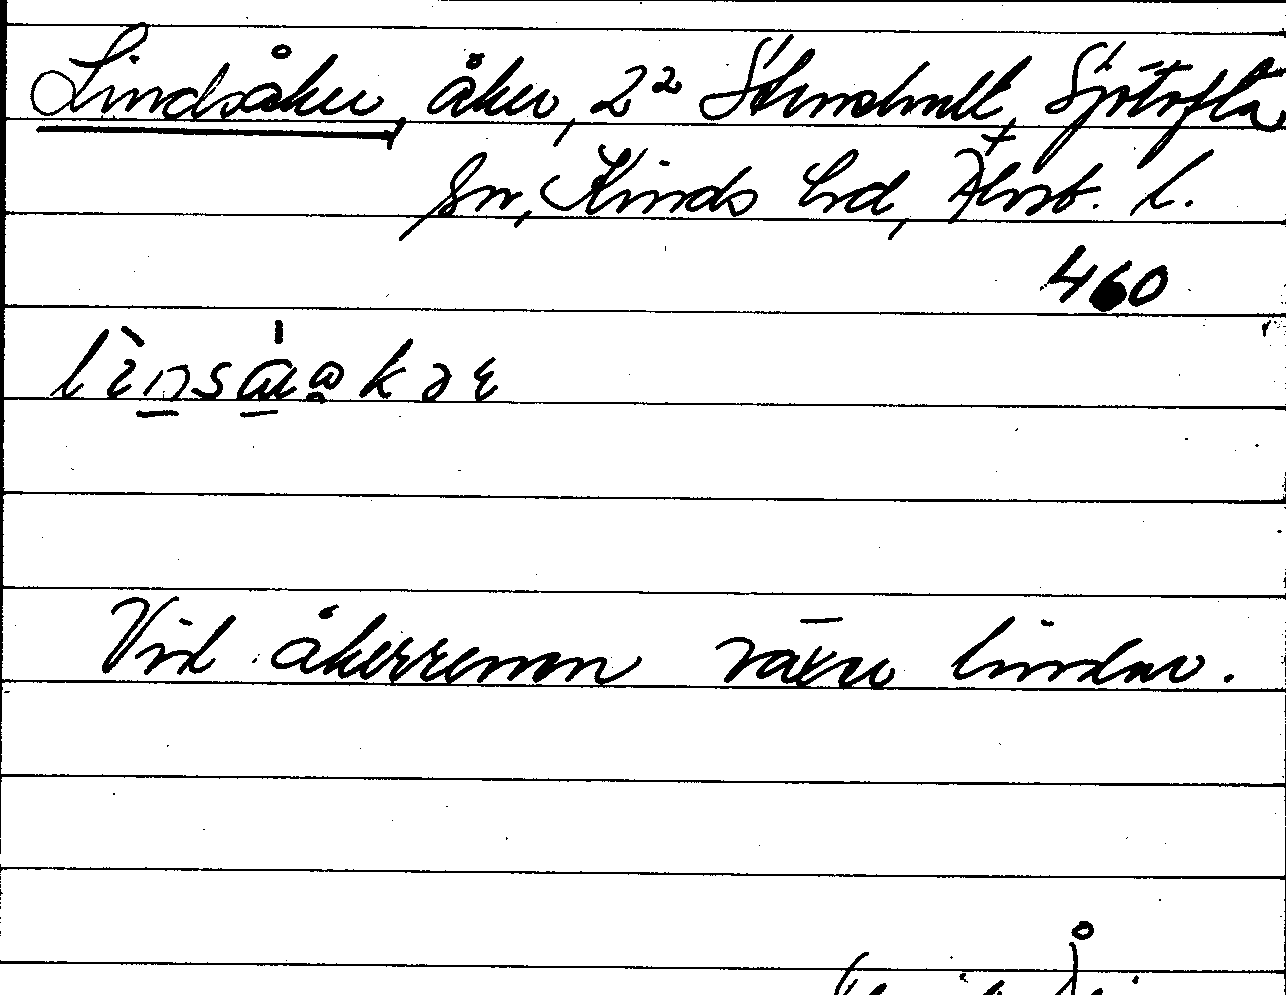 Lindsåker, åker, 2² Stendhult, Sjötofta
sn, Kinds hd, Älvsb. l.
460
Vid åkerrenen växer lindar.